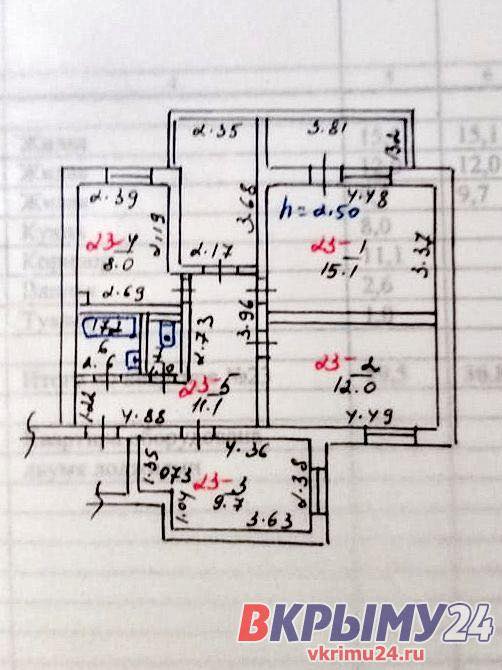 4 5 6
15,1
12,0
9,7
8,0
11,1
2,6
2.35 3.81
1.32
2.39 2.19 3.68
h=2.50
4.48
23-4
8.0
2.17
23-1
15.1
3.37
2.69
2.73
3.96
172
6
2.6
23-2
12.0
23-5
11.1
1.22
4.88
4.49
4.36
1.35
073
23-3
9.7
2.38
1.04
3.63
ВКРЫМУ24
vkrimu24.ru